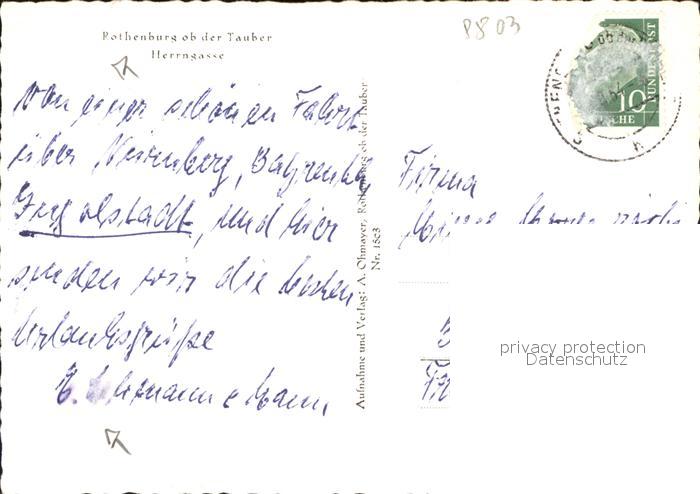 Rothenburg ob der Tauber
Herrngasse
P8 03
10
BUNDESPOST
Von einer schönen Fahrt
über Nürnberg, Bayreuth,
und hier
senden wir die besten
Urlaubsgrüße
Aufnahme und Verlag: A. Ohmayer, Rothenburg ob der Tauber
Nr. 1563
Firma
privacy protection
Datenschutz